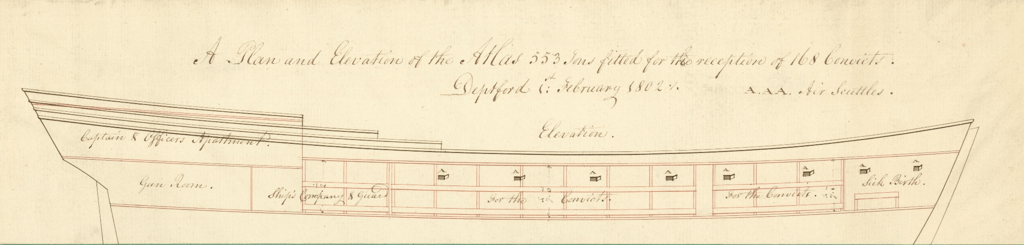 A Plan and Elevation of the Atlas 553 Tons fitted for the reception of 168 Convicts.
Deptford 1st February 1802.
A.AA. Air Scuttles.
Elevation.
Captain & Officers Apartment.
Gun Room.
Ship's Company & Guard
For the Convicts.
For the Convicts.
Sick Birth.